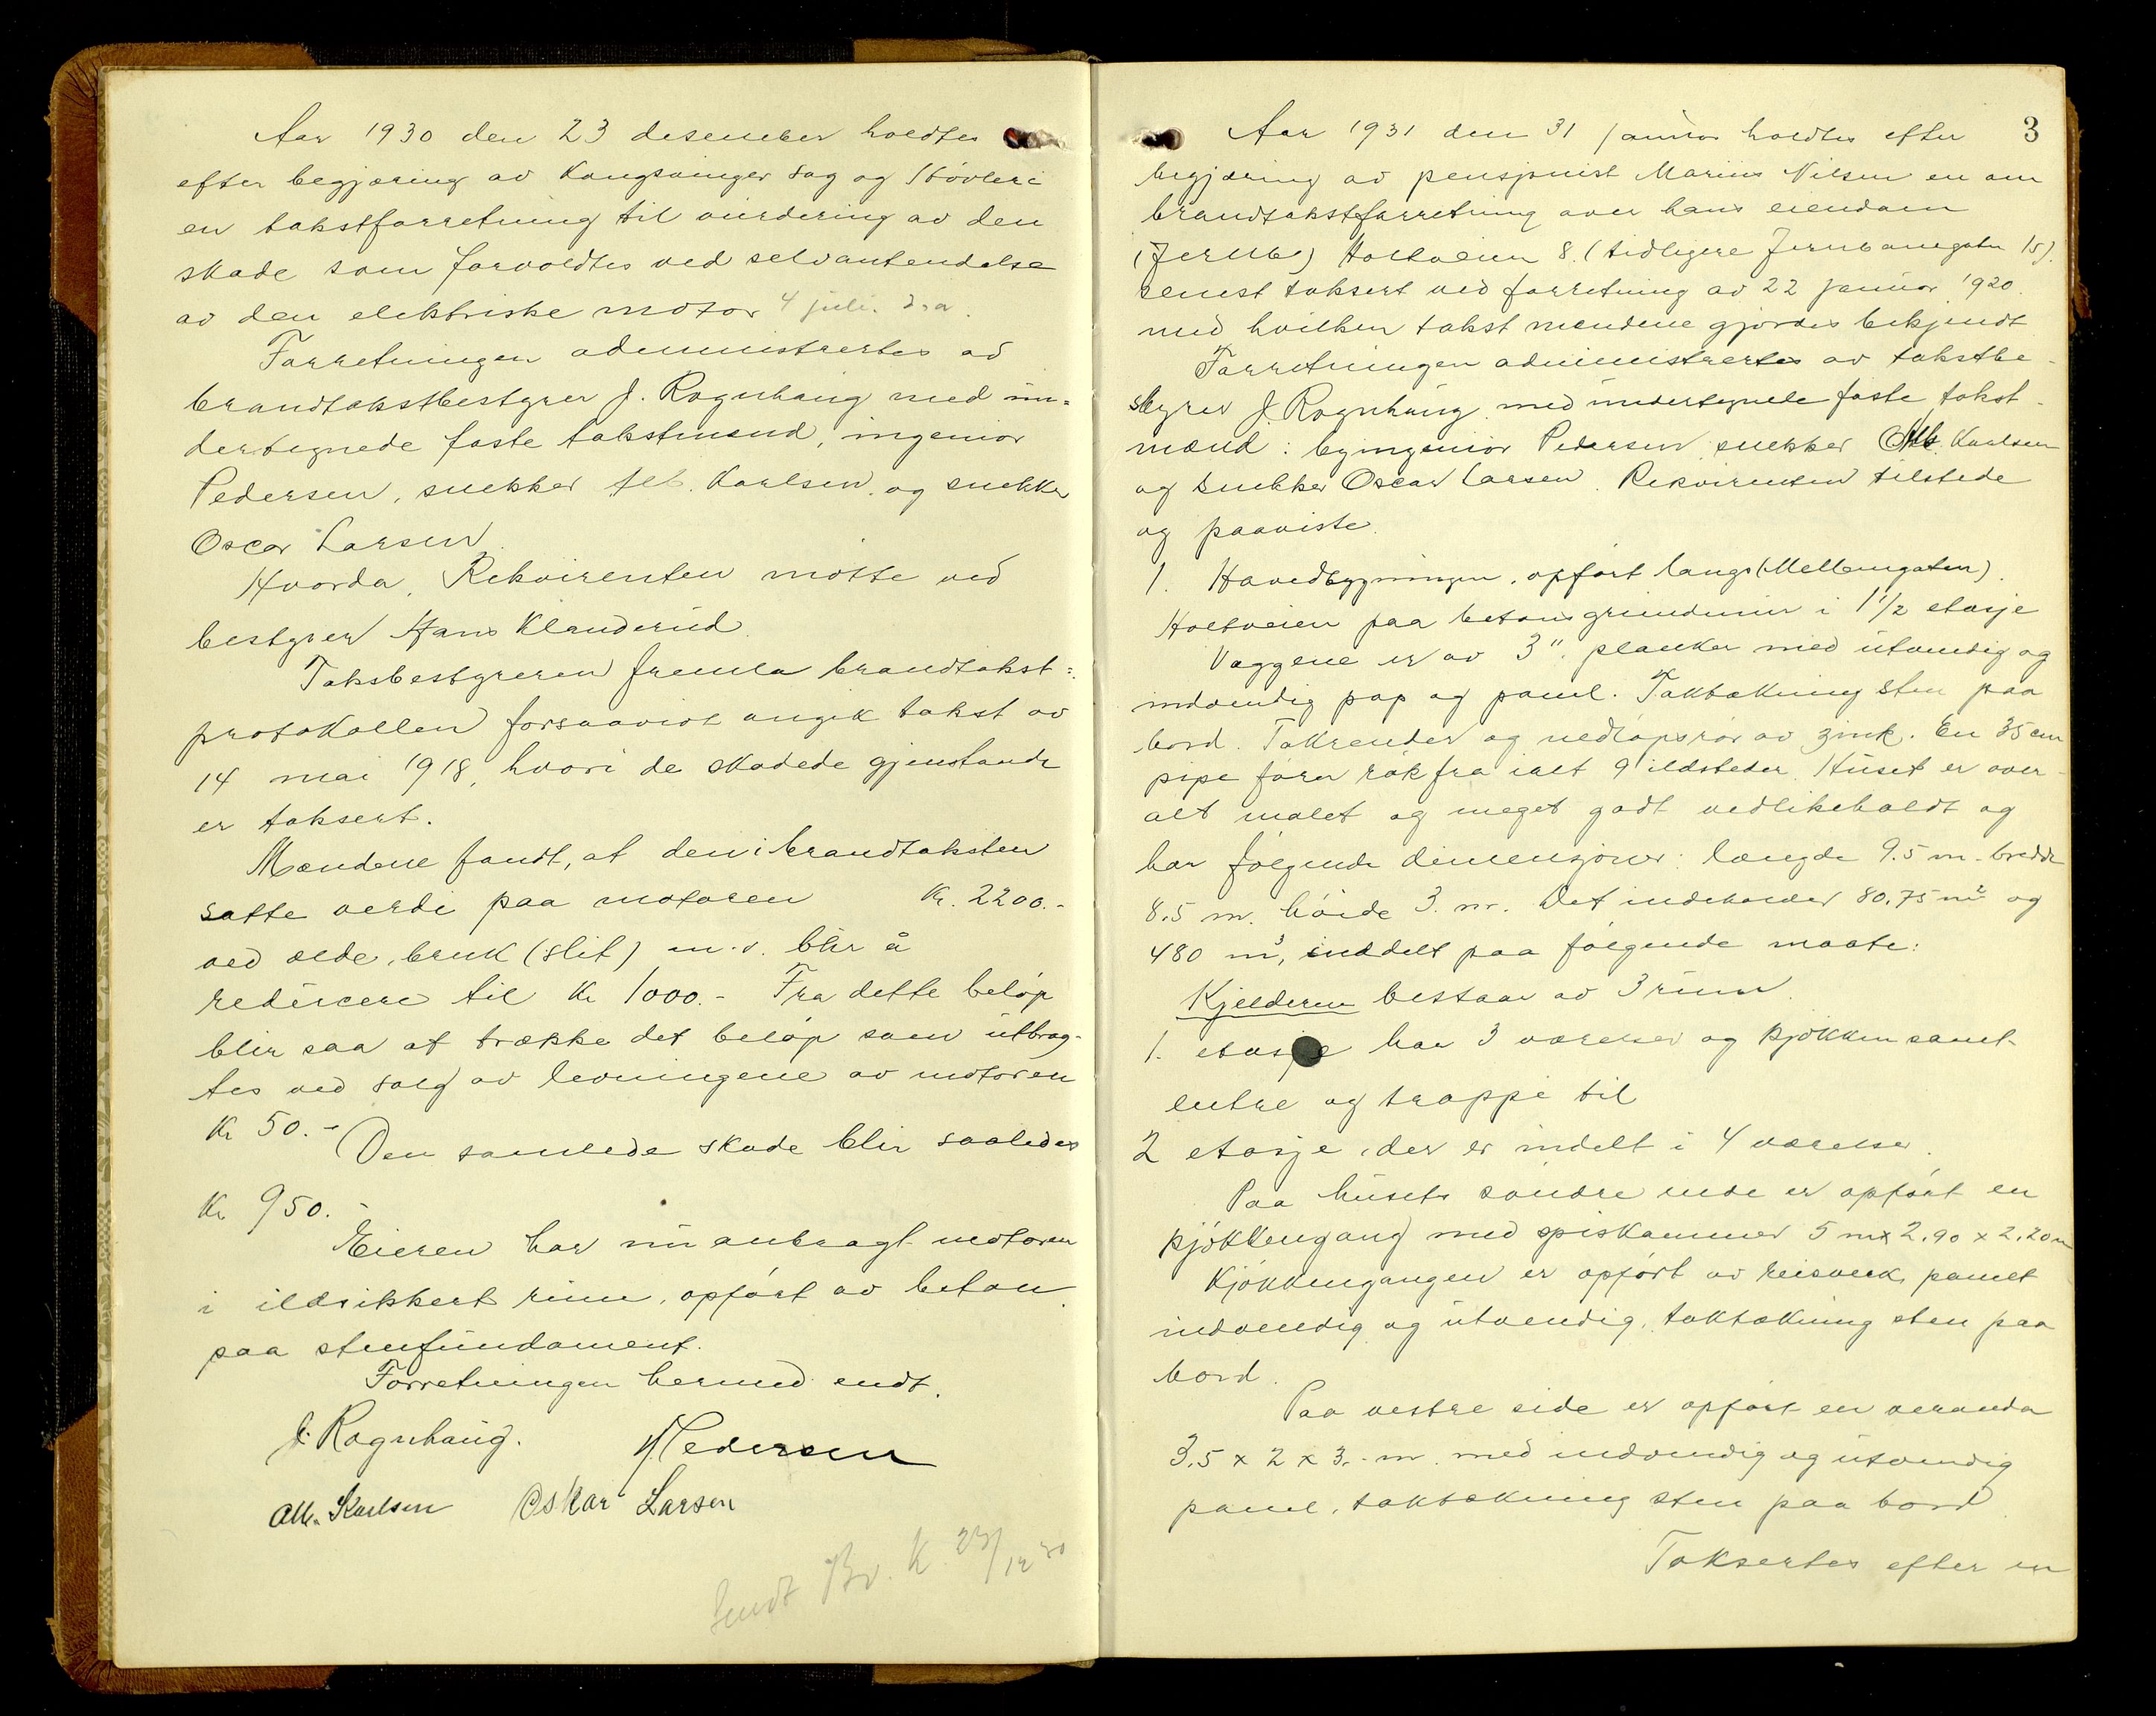 Aar 1930 den 23 desember holdtes
efter begjæring av Kongsvinger Sag og Høvleri
en takstforretning til vurdering av den
skade som forvoldtes ved selvantendelse
av den elektriske motor 4 juli. d.a.
Forretningen administrertes av
brandtakstbestyrer J. Rognhaug med un=
dertegnede faste takstmænd, ingeniør
Pedersen, snekker Alb. Karlsen og snekker
Oscar Larsen.
Hvorda. Rekvirenten møtte ved
bestyrer Hans Klanderud
Taksbestyreren fremla brandtakst=
protokollen forsaavidt angik takst av
14 mai 1918, hvori de skadede gjenstande
er taksert.
Mændene fandt, at den i brandtaksten
satte verdi paa motoren Kr. 2200.-
ved ælde, bruk (slit) m.v. blir å
reducere til Kr 1000.- Fra dette beløp
blir saa at trække det beløp som utbrag-
tes ved salg av levningene av motoren
Kr 50.- Den samlede skade blir saaledes
Kr 950.-
Eieren har nu anbragt motoren
i ildsikkert rum, opført av beton
paa stenfundament.
Forretningen hermed endt.
J. Rognhaug. Pedersen
Alb. Karlsen Oskar Larsen
Sendt Br. K. 23/12 30
3
Aar 1931 den 31 januar holdtes efter
begjæring av pensjonist Marius Nilsen en om
brandtakstforretning over hans eiendom
(Jernb) Holtveien 8. (tidligere Jernbanegaten 15).
senest taksert ved forretning av 22 januar 1920.
med hvilken takst mændene gjordes bekjendt
Forretningen administrertes av takstbe-
styrer J. Rognhaug med undertegnede faste takst-
mænd: byingeniør Pedersen snekker Alb. Karlsen
og snekker Oscar Larsen. Rekvirenten tilstede
og paaviste.
1. Hovedbygningen, opført langs (Mellemgaten)
Holtveien paa betons grundmur i 1 1/2 etasje
Væggene er av 3" planker med utvendig og
indvendig pap og panel. Taktækning sten paa
bord. Takrender og nedløpsrør av zink. En 35 cm
pipe fører røk fra ialt 9 ildsteder. Huset er over-
alt malet og meget godt vedlikeholdt og
har følgende dimensjoner: længde 9.5 m. bredde
8.5 m. høide 3. m. Det indeholder 80,75 m² og
480 m³, inddelt paa følgende maate:
Kjelderen bestaar av 3 rum.
1. etasje har 3 værelser og kjøkken samt
entre og trappe til
2 etasje, der er indelt i 4 værelser.
Paa husets søndre ende er opført en
kjøkkengang med spiskammer 5 m x 2,90 x 2,20 m
Kjøkkengangen er opført av reisverk, panelt
indvendig og utvendig, taktækning sten paa
bord.
Paa vestre side er opført en veranda
3,5 x 2 x 3.- m. med indvendig og utvendig
panel, taktækning sten paa bord
Taksertes efter en